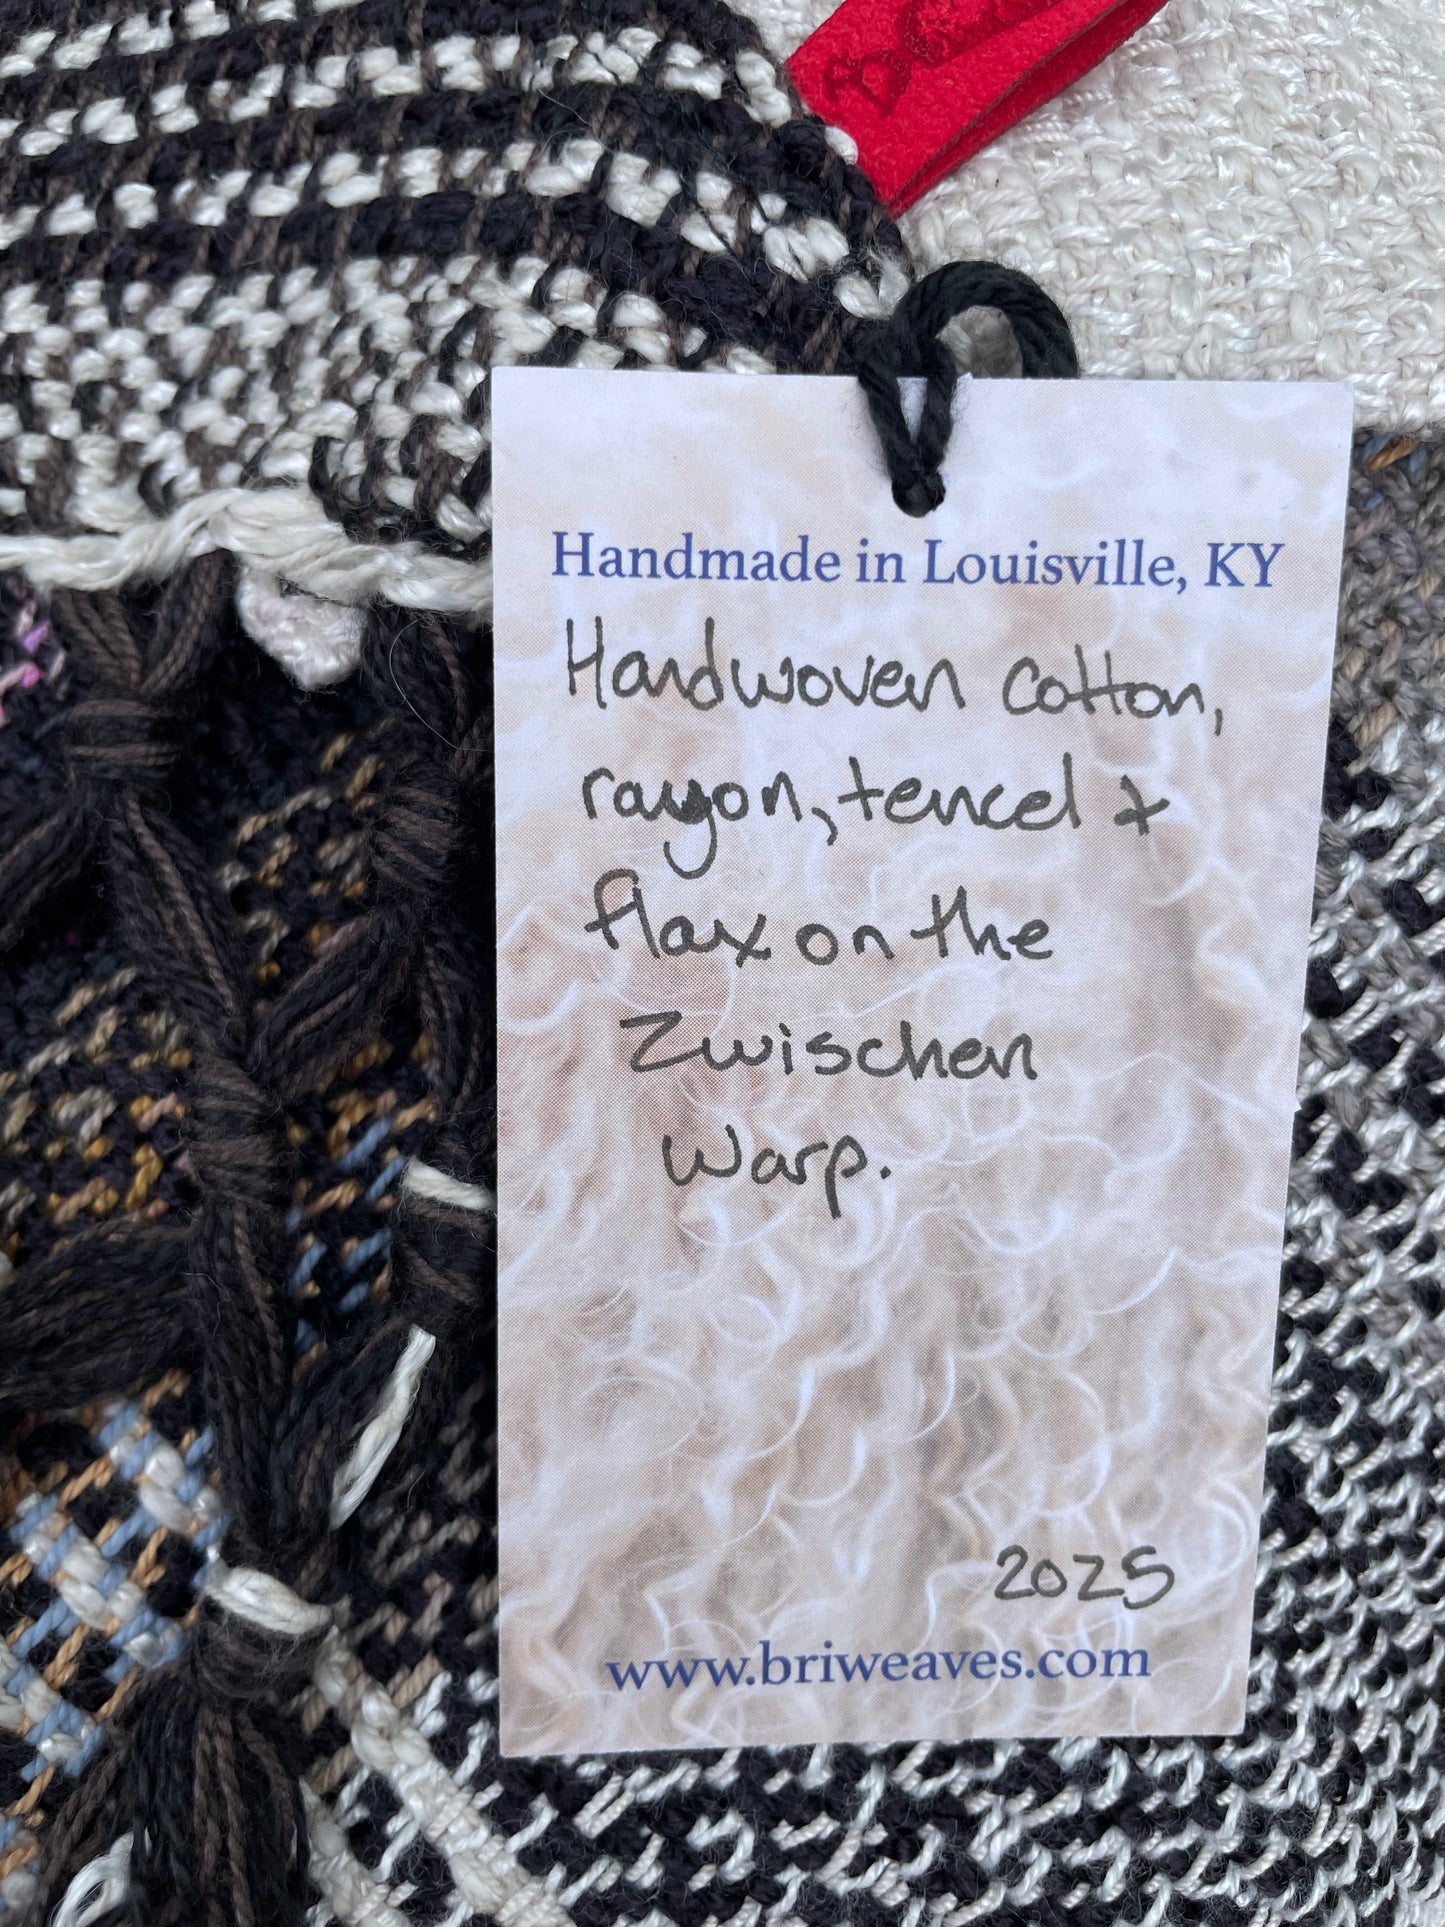 Handmade in Louisville, KY
Handwoven cotton,
rayon, tencel &
flax on the
Zwischen
Warp.
2025
www.briweaves.com